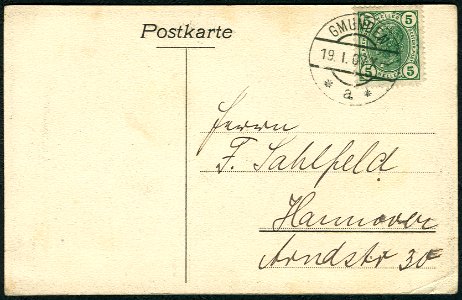 Postkarte
GMUNDEN
19. I. 07
* a *
5 5
5 5
Herrn
F. Sahlfeld
Hannover
Arndstr 30